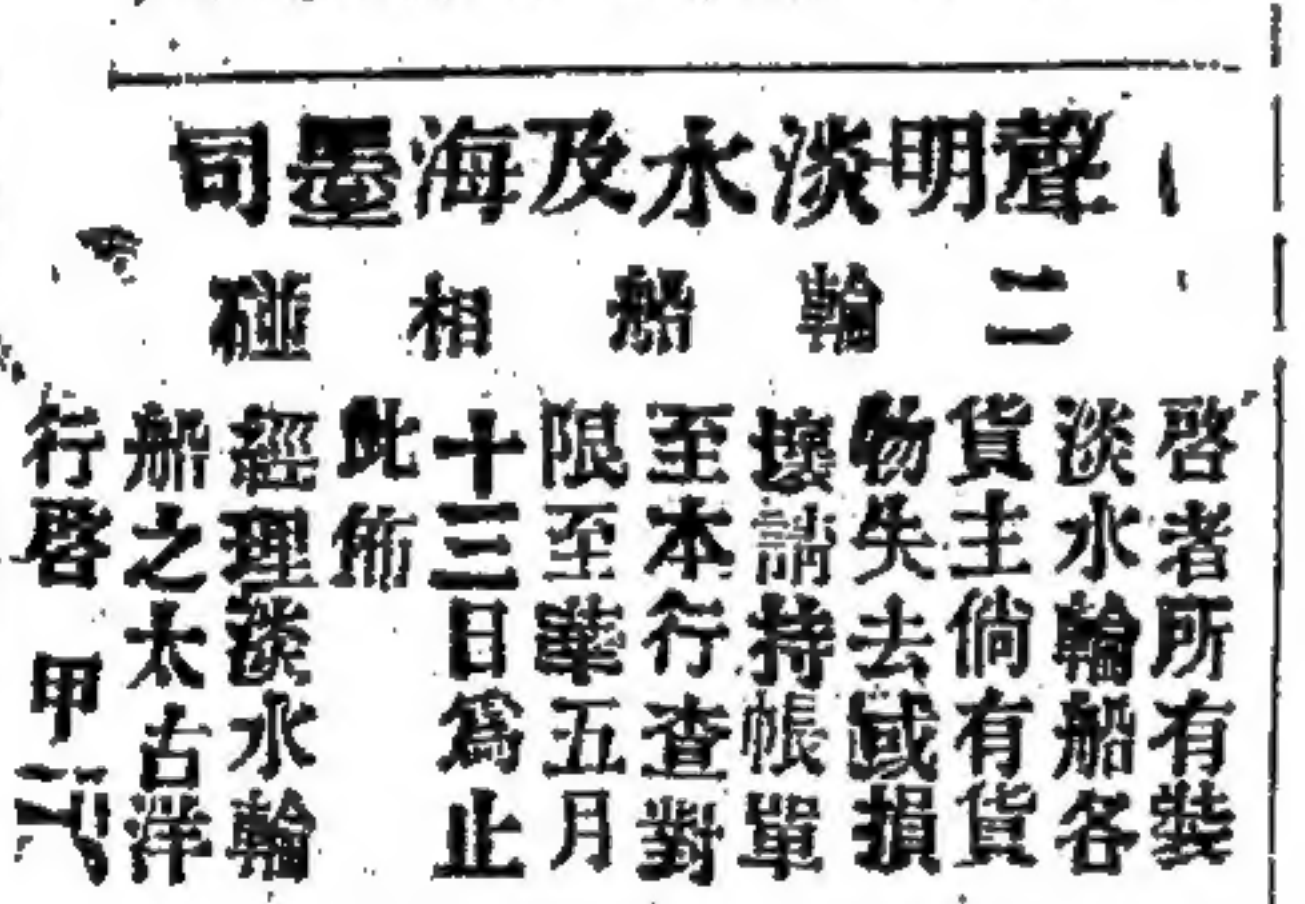 聲明淡水及海墨司
二輪船相碰
啓者所有裝
淡水輪船各
貨主倘有貨
物失去或損
壞請持帳單
至本行查對
限至華五月
十三日爲止
此佈
經理淡水輪
船之太古洋
行啓 甲